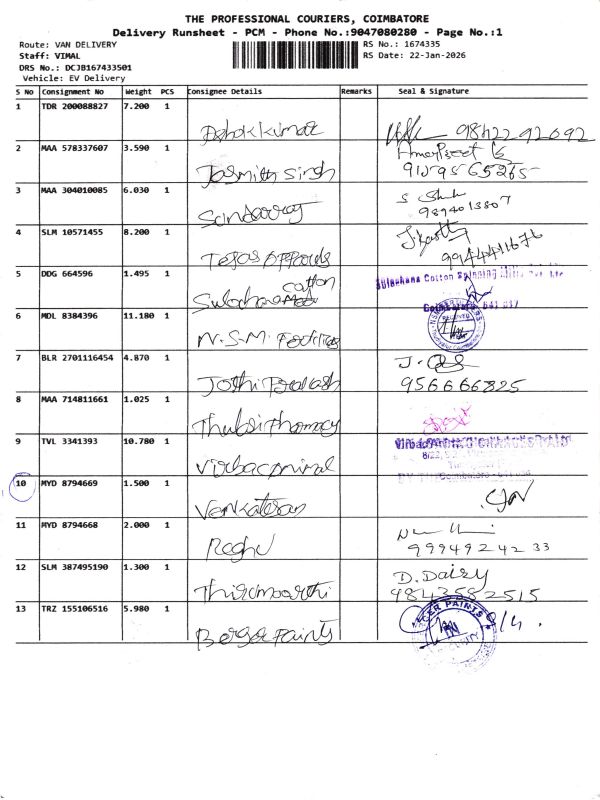 THE PROFESSIONAL COURIERS, COIMBATORE
Delivery Runsheet - PCM - Phone No.:9047080280 - Page No.:1
Route: VAN DELIVERY RS No.: 1674335
Staff: VIMAL RS Date: 22-Jan-2026
DRS No.: DCJB167433501
Vehicle: EV Delivery
S No Consignment No Weight PCS Consignee Details Remarks Seal & Signature
1 TDR 200088827 7.200 1
Ashok kumar 9842292092
2 MAA 578337607 3.590 1
Jasmith Singh 9159565265
3 MAA 304010085 6.030 1
Sundarraj 9894013807
4 SLM 10571455 8.200 1
Texas 994441676
5 DDG 664596 1.495 1
cotton Sulochana Cotton Spinning Mills Pvt Ltd
Sulochana Coimbatore 641 017
6 MDL 8384396 11.180 1
N.S.M. RECEIVED
7 BLR 2701116454 4.870 1
Joshi 956666825
8 MAA 714811661 1.025 1
Thulasi Pharmacy
9 TVL 3341393 10.780 1
Virbac animal
10 MYD 8794669 1.500 1
Venkatesan
11 MYD 8794668 2.000 1
Reghu 9994924233
12 SLM 387495190 1.300 1 D. Daisy
Thirumoorthi 9843582515
13 TRZ 155106516 5.980 1
Berger Paints BERGER PAINTS